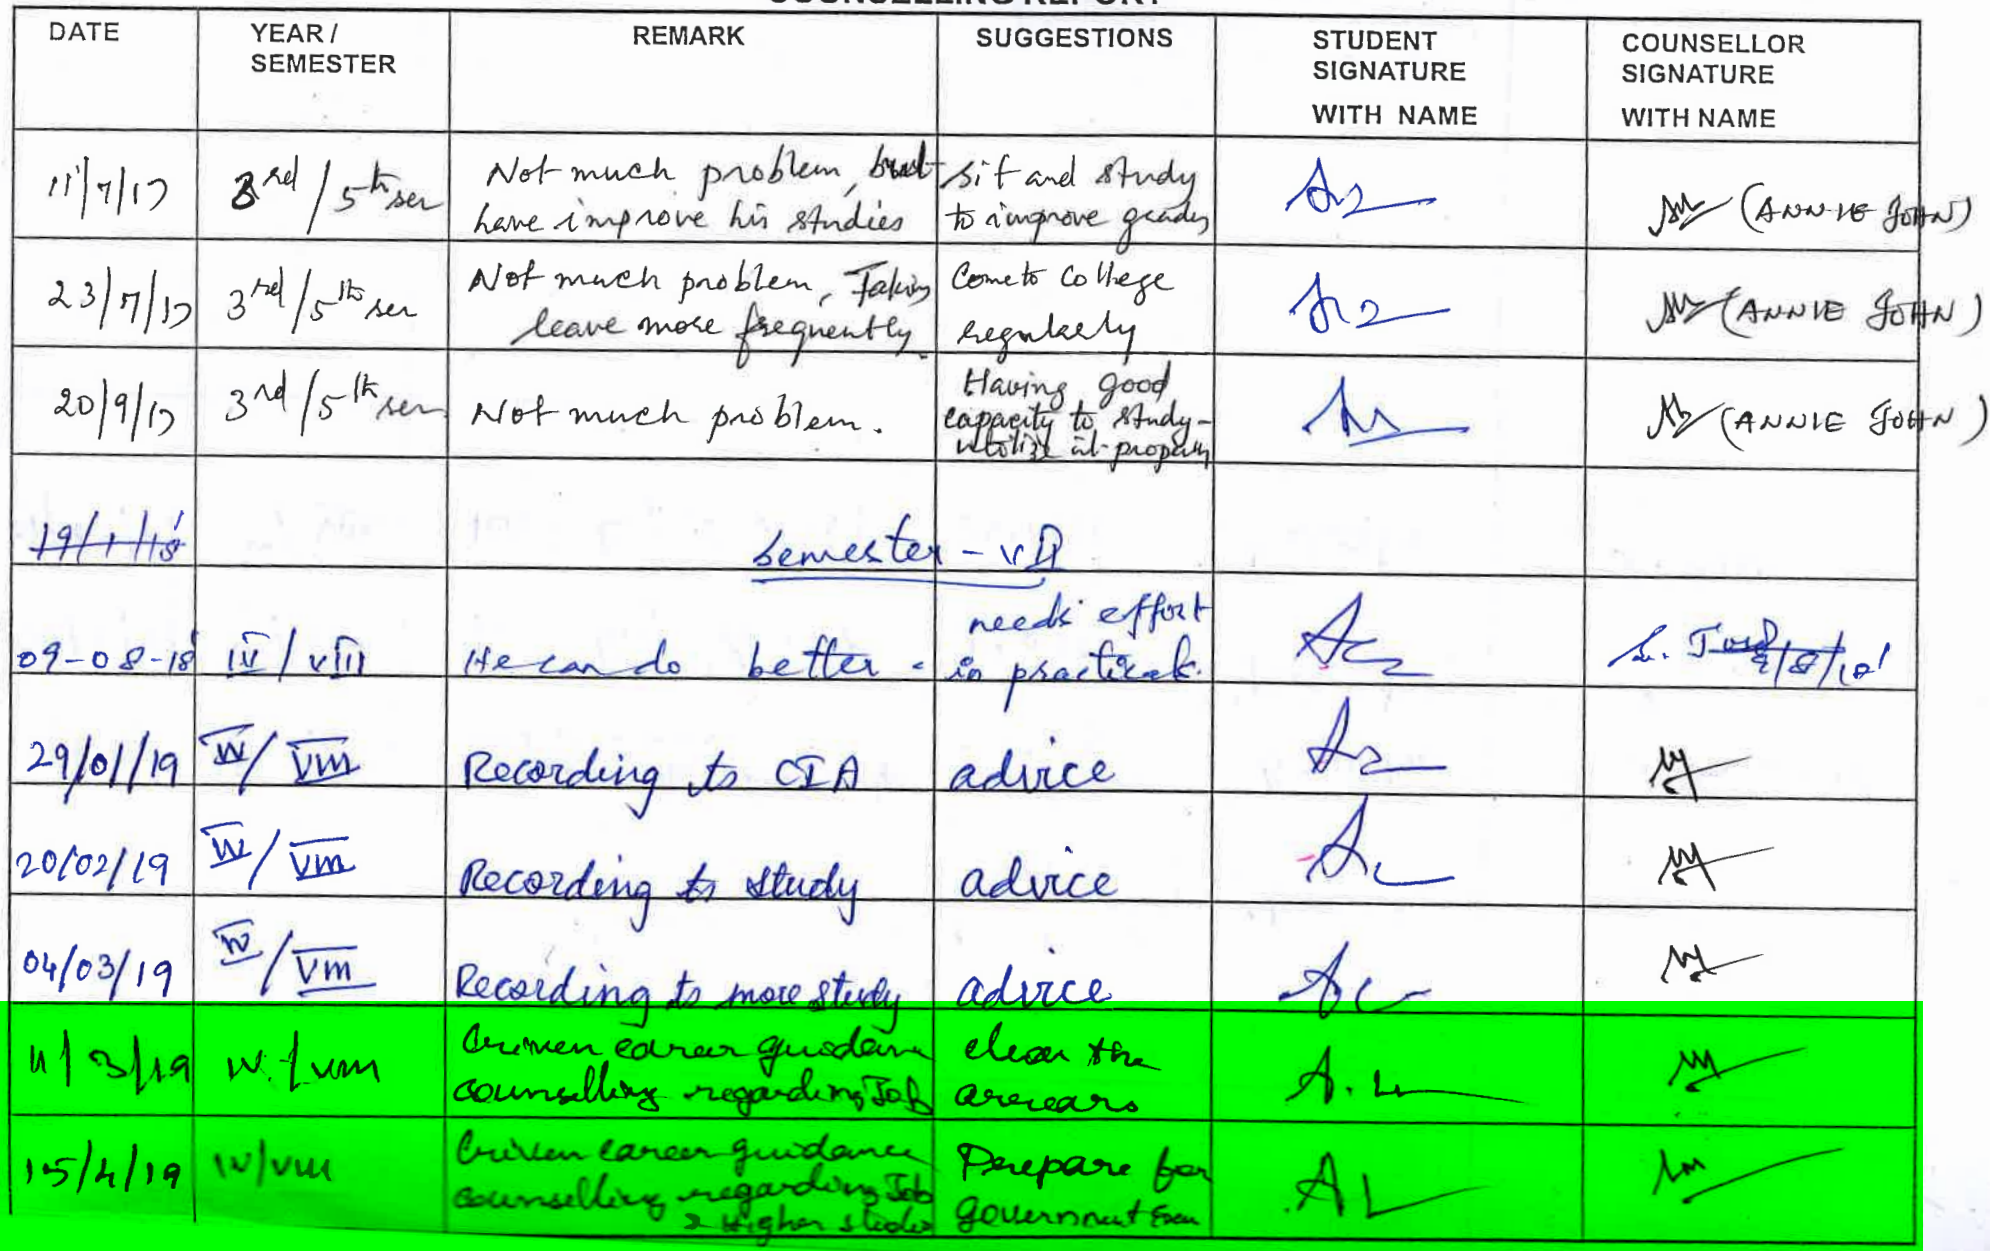 COUNSELLING REPORT
DATE YEAR / SEMESTER REMARK SUGGESTIONS STUDENT SIGNATURE WITH NAME COUNSELLOR SIGNATURE WITH NAME
11/7/17 3rd / 5th sem Not much problem, but sit and study
have improve his studies to improve grades (ANNIE JOHN)
23/7/17 3rd / 5th sem Not much problem, Taking Come to College
leave more frequently. regularly (ANNIE JOHN)
20/9/17 3rd / 5th sem Not much problem. Having good
capacity to study-
utilize it properly (ANNIE JOHN)
19/1/18 Semester - VII
09-08-18 IV / VII He can do better. needs effort
in practicals. 9/8/18
29/01/19 IV / VIII Recording to CIA advice
20/02/19 IV / VIII Recording to study advice
04/03/19 IV / VIII Recording to more study advice
11/3/19 IV / VIII Given career guidance clear the
counselling regarding Job arrears
15/4/19 IV/VIII Given career guidance Prepare for
counselling regarding Job Government Exam
& Higher studies